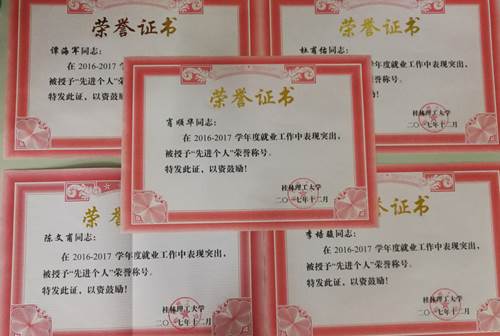 荣誉证书
谭海军同志：
在 2016-2017 学
被授予“先进个人”荣
特发此证，以资鼓励！
荣誉证书
同志：
在 2016-2017 学年度就业工作中表现突出，
荣誉称号。
桂林理工大学
二〇一七年十二月
荣誉证书
肖顺华同志：
在 2016-2017 学年度就业工作中表现突出，
被授予“先进个人”荣誉称号。
特发此证，以资鼓励！
桂林理工大学
二〇一七年十二月
荣誉证书
同志：
在 2016-2017 学年度就业工作中表现突出，
被授予“先进个人”荣誉称号。
特发此证，以资鼓励！
桂林理工大学
二〇一七年十二月
荣誉证书
李培骏同志：
在 2016-2017 学年度就业工作中表现突出，
被授予“先进个人”荣誉称号。
特发此证，以资鼓励！
桂林理工大学
二〇一七年十二月